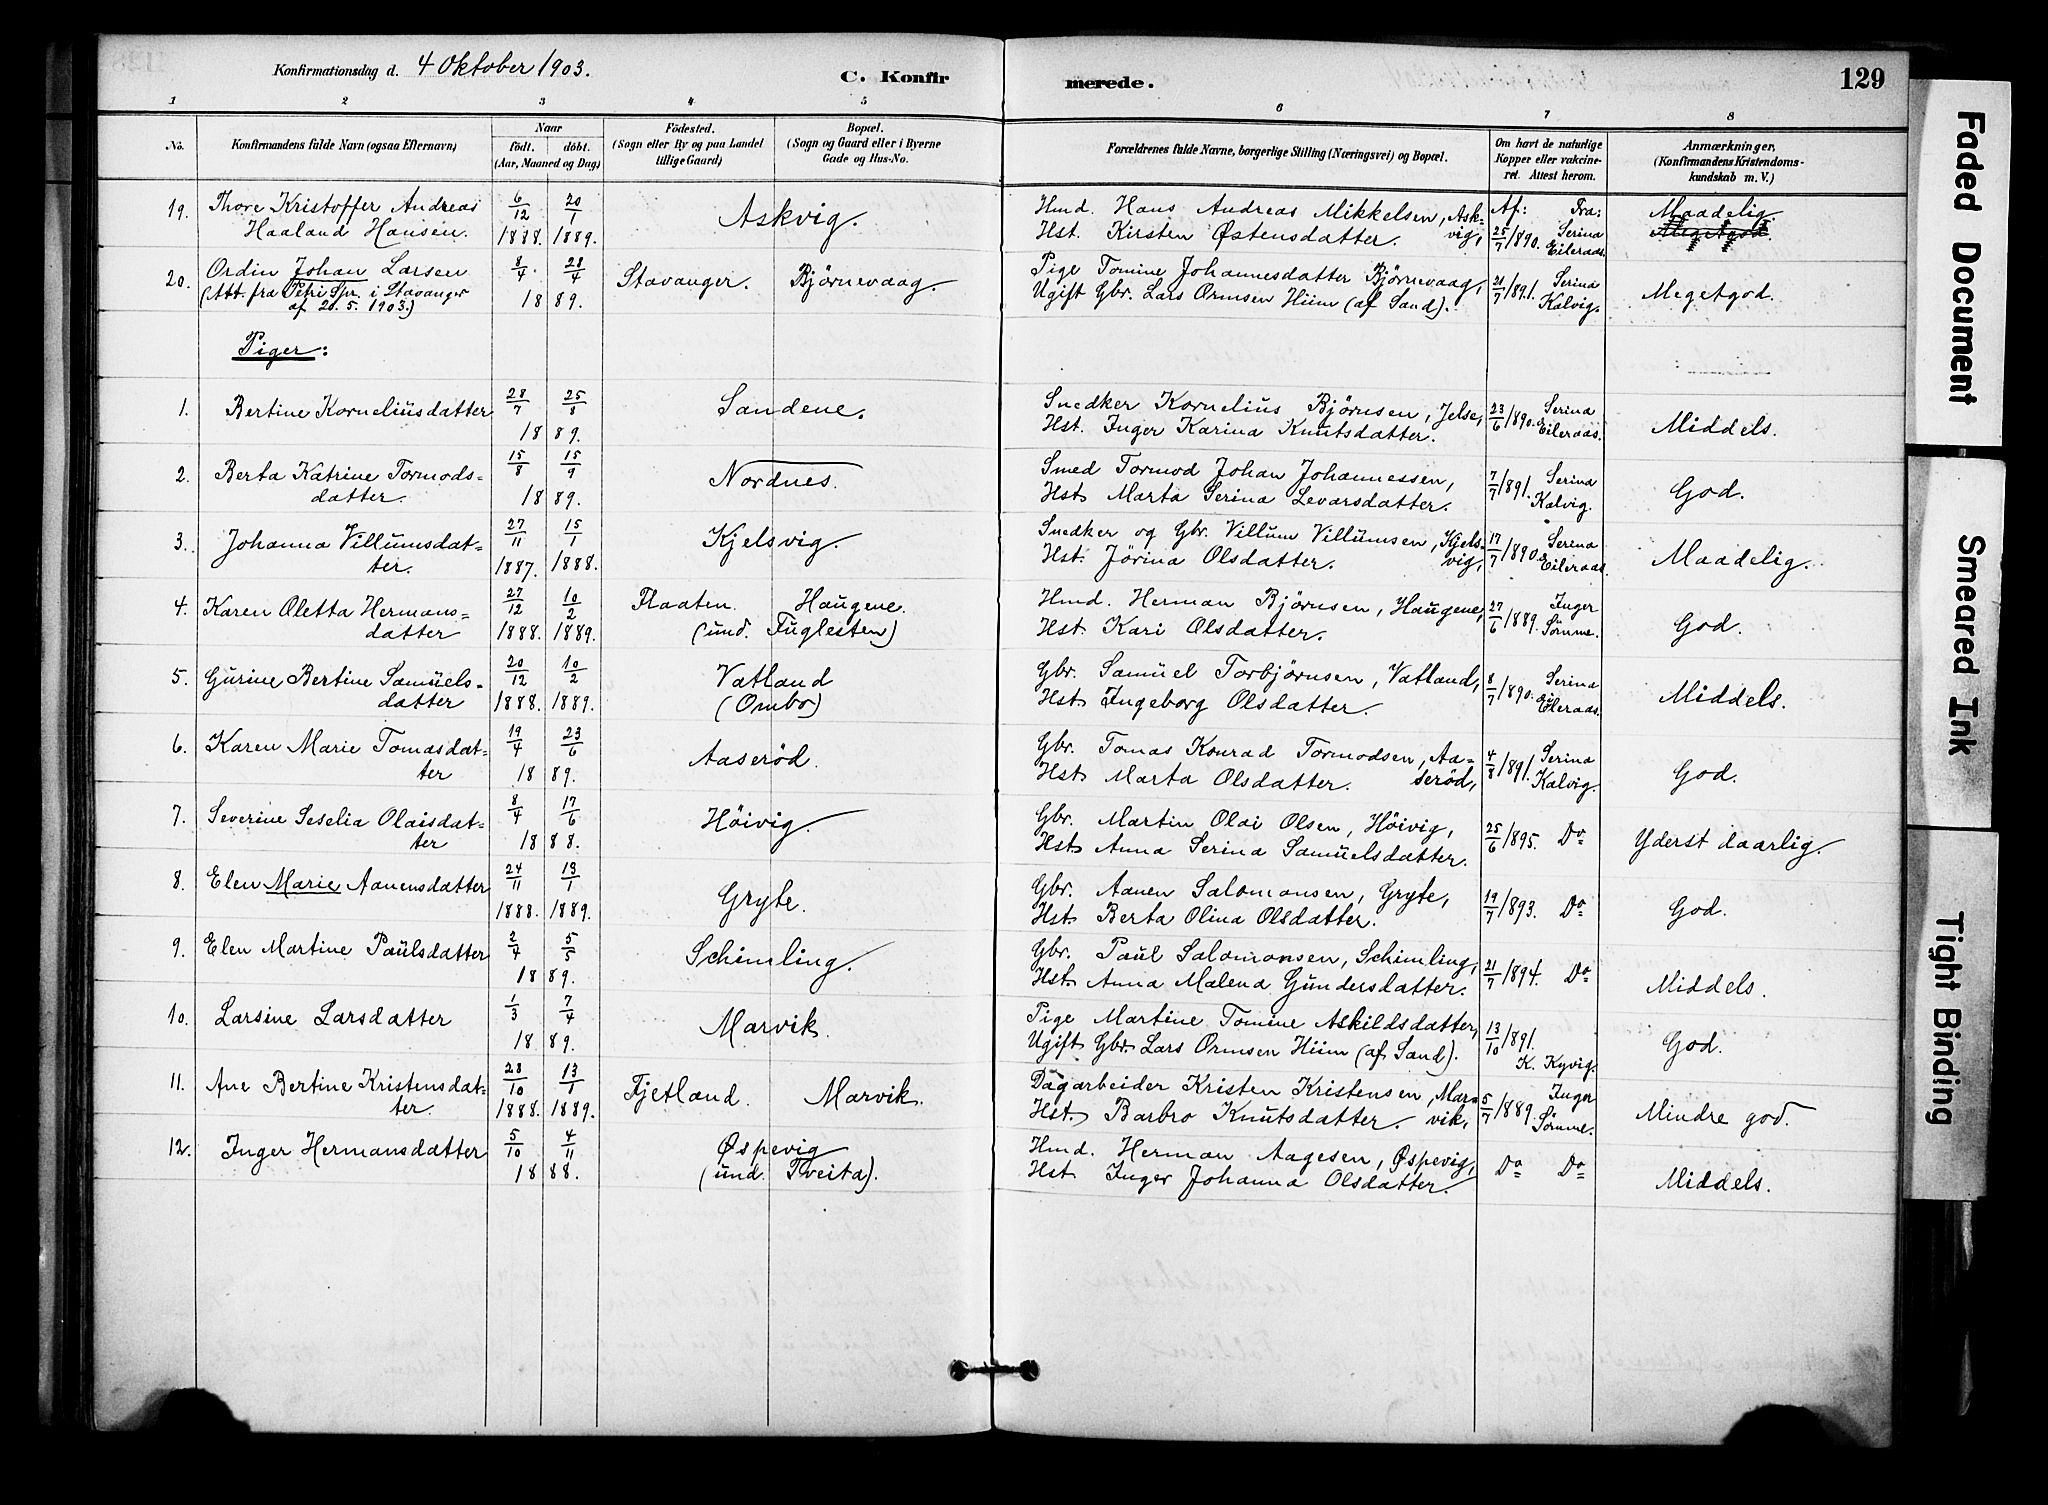 Konfirmationsdag d. 4 Oktober 1903.
C. Konfir merede. 129
1 2 3 4 5 6 7 8
No. Konfirmandens fulde Navn (ogsaa Efternavn) Naar født. døbt. (Aar, Maaned og Dag) Fødested. (Sogn eller By og paa Landet tillige Gaard) Bopæl. (Sogn og Gaard eller i Byerne Gade og Hus-No. Forældrenes fulde Navne, borgerlige Stilling (Næringsvei) og Bopæl. Om havt de naturlige Kopper eller vakcineret. Attest herom. Anmærkninger, (Konfirmandens Kristendomskundskab m. V.)
19. Thore Kristoffer Andreas 6/12 20/1 Askvig. Hmd. Hans Andreas Mikkelsen, Ask- Af: Fra: Maadelig.
Haaland Hansen. 1888. 1889. Hst. Kirsten Østensdatter. vig, 25/7/890. Serina Eileraas. Megetgod.
20. Ordin Johan Larsen 8/4 28/4 Stavanger. Bjørnevaag. Pige Tomine Johannesdatter Bjørnevaag, 21/7/891. Serina Kalvig. Megetgod.
(Att. fra Petri Spr. i Stavanger 1889. Ugift Gbr. Lars Ormsen Hiim (af Sand).
af 20. 5. 1903.)
Piger:
1. Bertine Korneliusdatter 28/7 25/8 Sandene. Snedker Kornelius Bjørnsen, Jelse, 23/6/890. Serina Eileraas. Middels.
1889. Hst. Inger Karina Knutsdatter.
2. Berta Katrine Tormods- 15/8 15/9 Nordnes. Smed Tormod Johan Johannessen, 7/7/891. Serina Kalvig. God.
datter. 1889. Hst. Marta Serina Levarsdatter.
3. Johanna Villumsdat- 27/11 15/1 Kjelsvig. Snedker og Gbr. Villum Villumsen, Kjels- 17/7/890. Serina Eileraas. Maadelig.
ter. 1887. 1888. Hst. Jørina Olsdatter. vig,
4. Karen Oletta Hermans- 27/12 10/2 Flaaten. Haugene. Hmd. Herman Bjørnsen, Haugene, 27/6/889. Inger Sømme. God.
datter 1888. 1889. (und. Fuglesten) Hst. Kari Olsdatter.
5. Gurine Bertine Samuels- 20/12 10/2 Vatland Gbr. Samuel Torbjørnsen, Vatland, 8/7/890. Serina Eileraas. Middels.
datter 1888. 1889. (Ombo) Hst. Ingeborg Olsdatter.
6. Karen Marie Tomasdat- 19/4 23/6 Aaserød. Gbr. Tomas Konrad Tormodsen, Aa- 4/8/891. Serina Kalvig. God.
ter 1889. Hst. Marta Olsdatter. serød,
7. Severine Seselia Olaisdat- 8/4 17/6 Høivig. Gbr. Martin Olai Olsen, Høivig, 25/6/895. Do Yderst daarlig.
ter 1888. Hst. Anna Serina Samuelsdatter.
8. Elen Marie Aanensdatter 24/11 13/1 Gryte. Gbr. Aanen Salomonsen, Gryte, 19/7/893. Do God.
1888. 1889. Hst. Berta Olina Olsdatter.
9. Elen Martine Paulsdatter 2/4 5/5 Schimling. Gbr. Paul Salomonsen, Schimling, 21/7/894. Do Middels.
1889. Hst. Anna Malena Gundersdatter.
10. Larsine Larsdatter 1/3 7/4 Marvik. Pige Martine Tomine Askildsdatter, 13/10/891. God.
1889. Ugift Gbr. Lars Ormsen Hiim (af Sand). K. Kyvig.
11. Ane Bertine Kristensdat- 28/10 13/1 Fjetland. Marvik. Dagarbeider Kristen Kristensen, Mar- 5/7/889. Inger Sømme. Mindre god.
ter. 1888. 1889. Hst. Barbro Knutsdatter. vik,
12. Inger Hermansdatter 5/10 4/11 Øspevig Hmd. Herman Aagesen, Øspevig, Do Do Middels.
1888. (und. Tveita). Hst. Inger Johanna Olsdatter.
Faded Document
Smeared Ink
Tight Binding